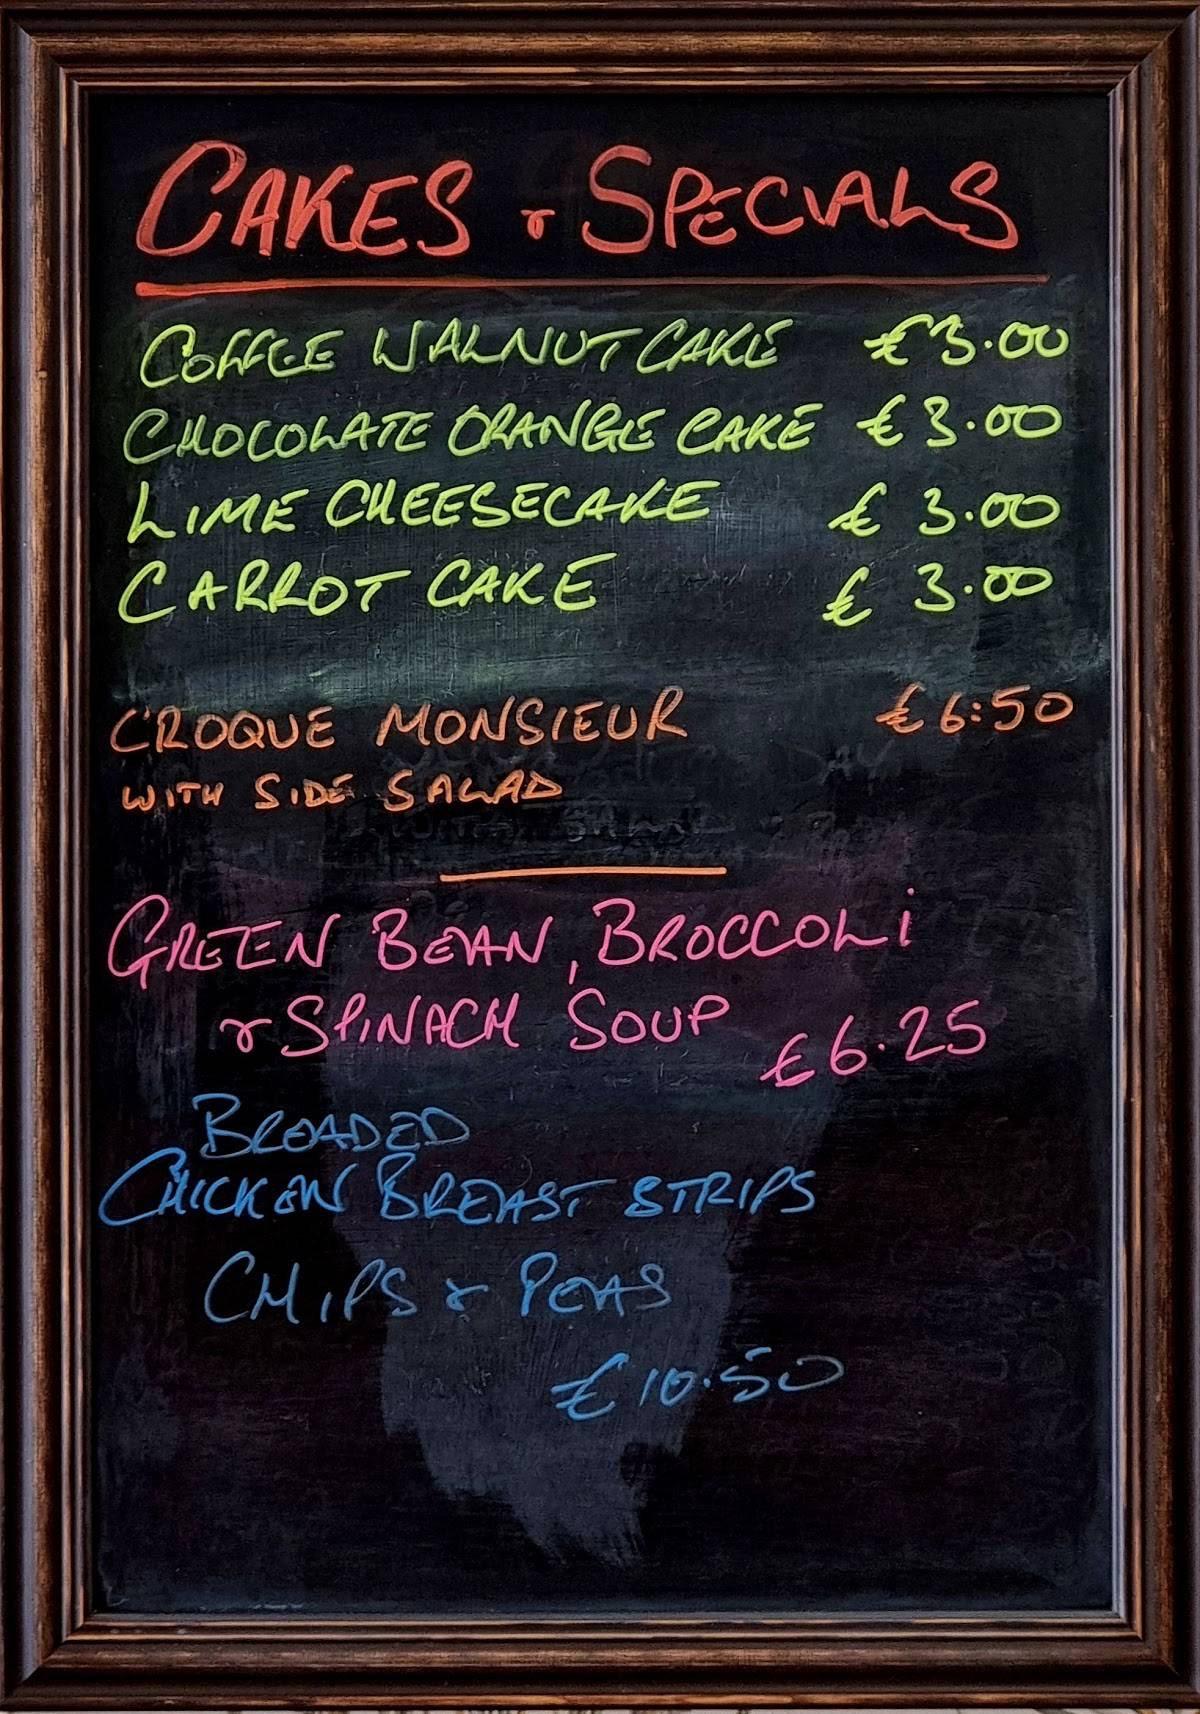 CAKES & SPECIALS
COFFEE WALNUT CAKE €3.00
CHOCOLATE ORANGE CAKE €3.00
LIME CHEESECAKE € 3.00
CARROT CAKE € 3.00
CROQUE MONSIEUR €6:50
WITH SIDE SALAD
GREEN BEAN, BROCCOLI
& SPINACH SOUP €6.25
BREADED
CHICKEN BREAST STRIPS
CHIPS & PEAS
€10.50